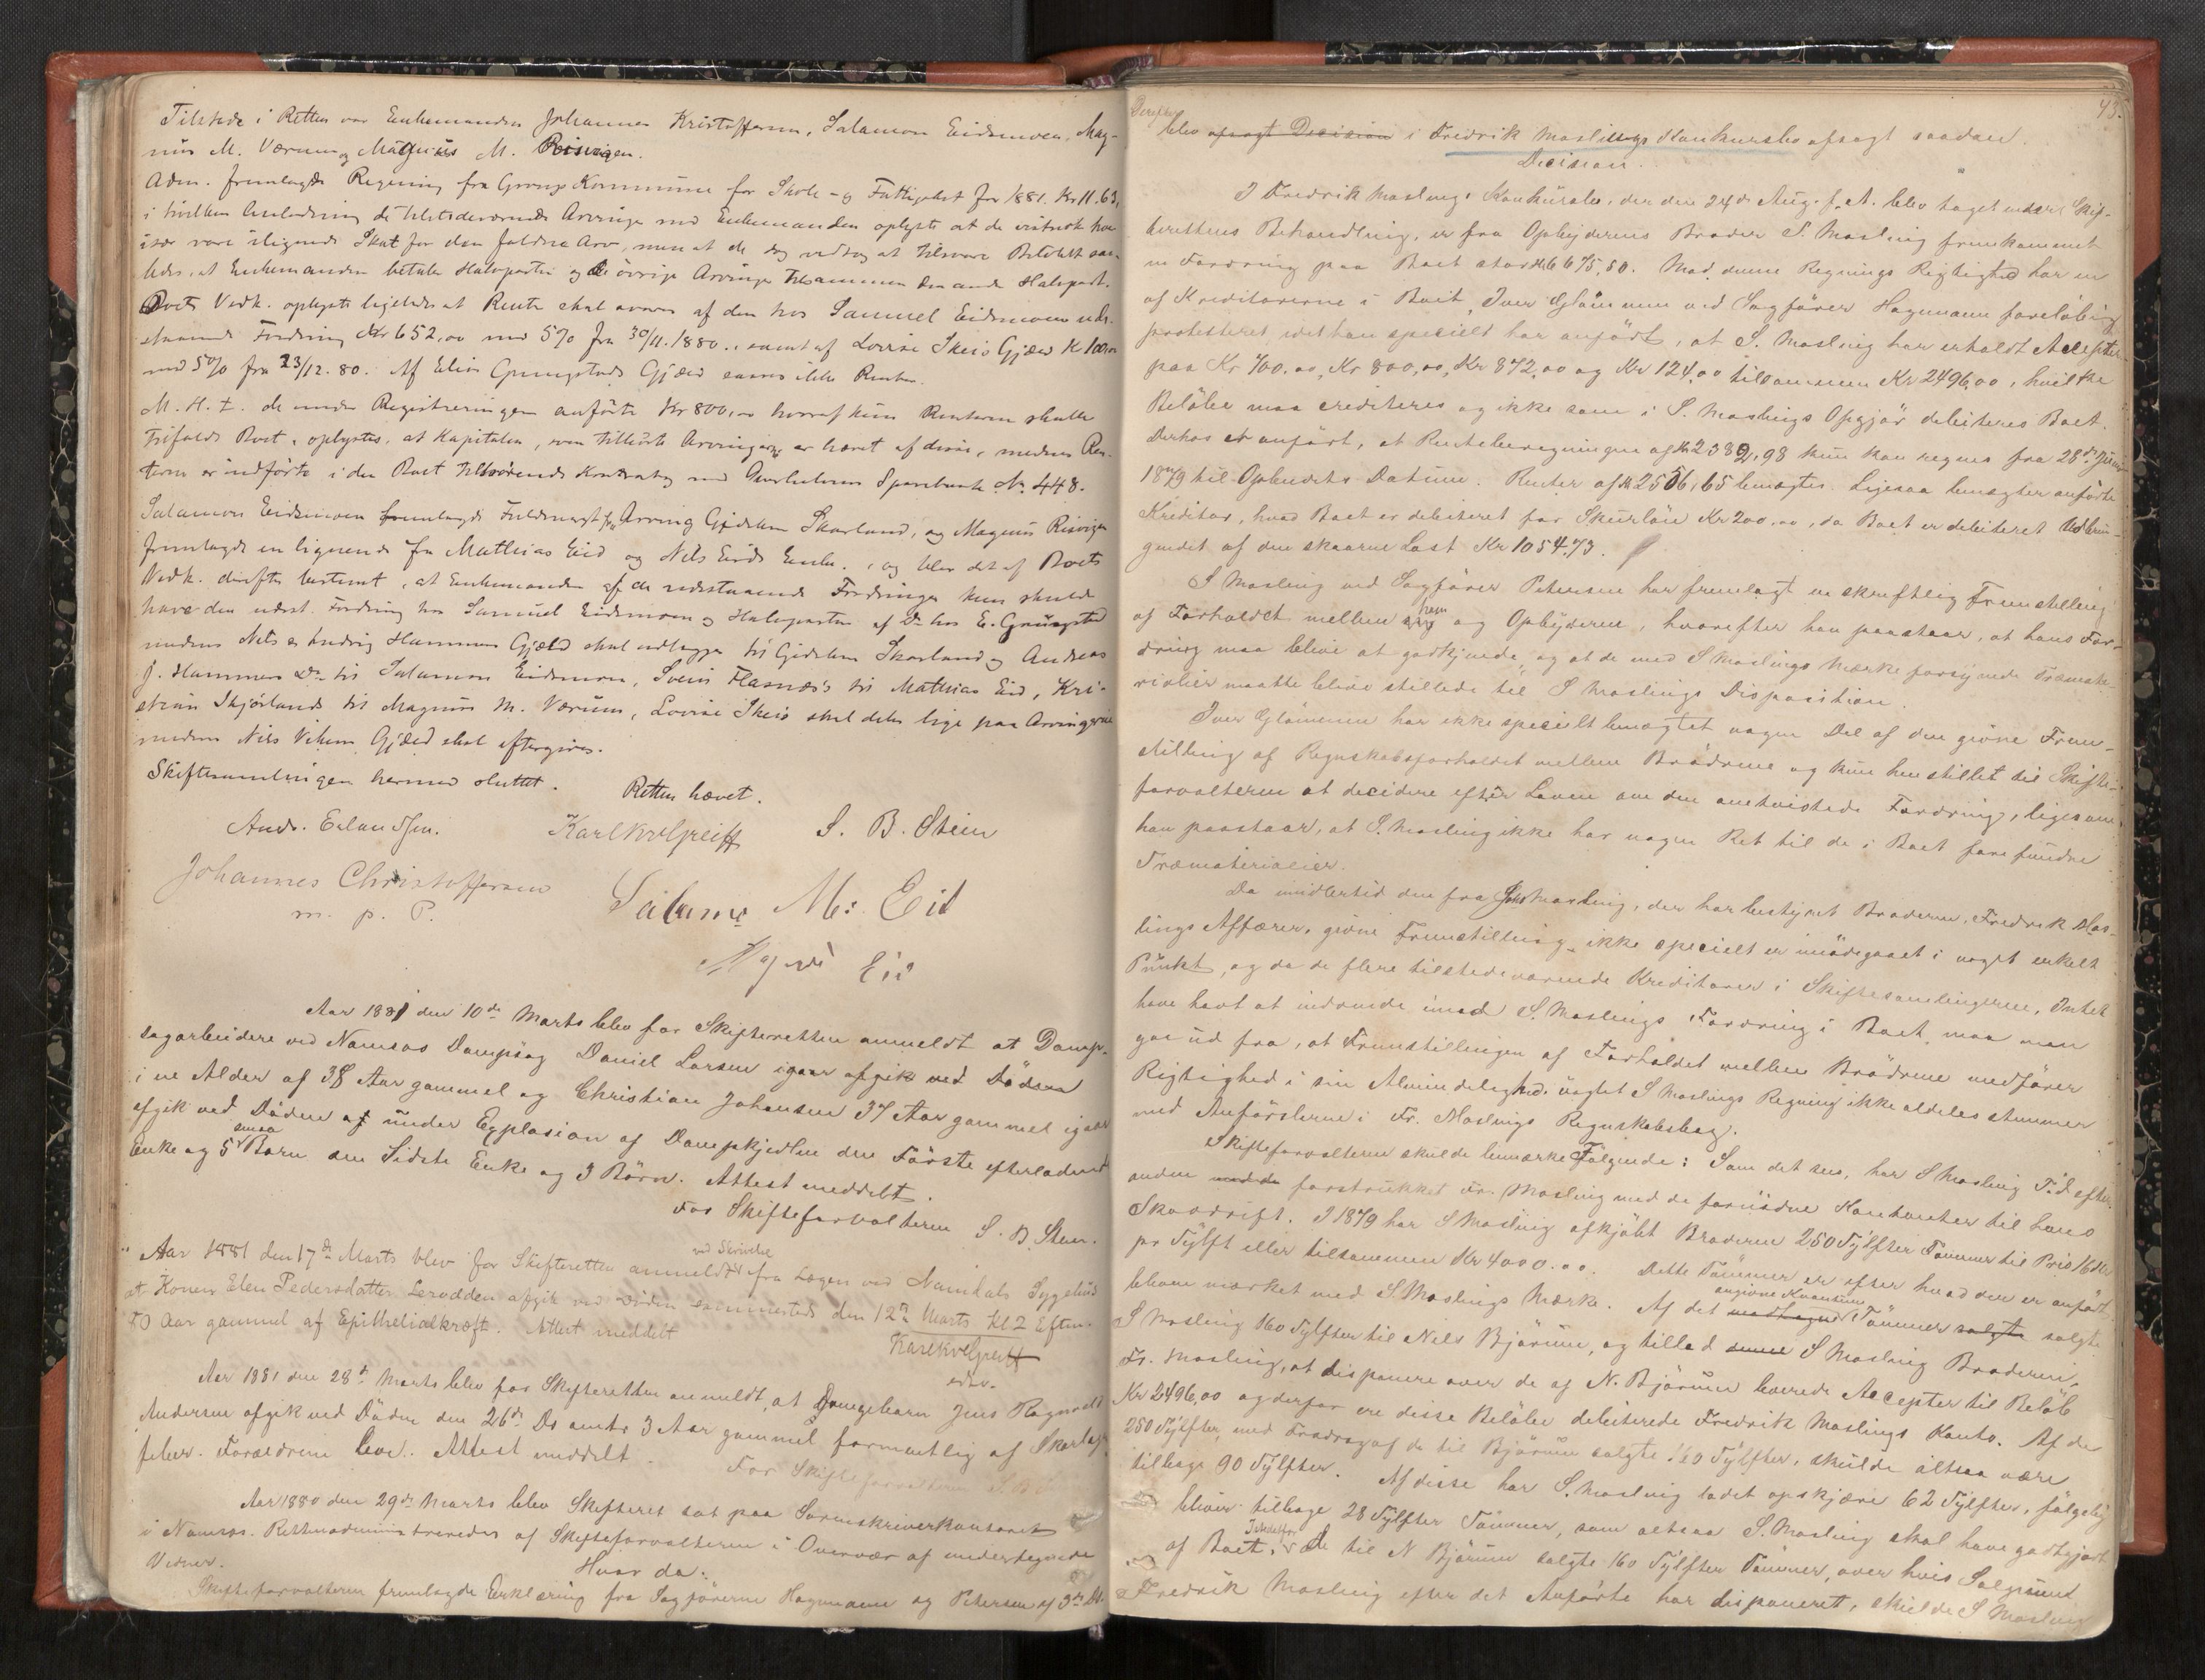 Tilstede i Retten var Enkemanden Johannes Kristoffersen, Salamon Eidsmoen, Mag-
nus M. Værum og Magnus M. Risvigen.
Adm. fremlagde Regning fra Grongs Kommune for Skole- og Fattigskat for 1881. Kr 11.63,
i hvilken Anledning de tilstedeværende Arvinge med Enkemanden oplyste at de vistnok har
især være ilignede Skat for den faldne Arv, men at de dog vedtog at tilsvare Beløbet saa-
ledes, at Enkemanden betaler Halvparten og de øvrige Arvinge tilsammen den anden Halvpart.
Boets Vedk. oplyste ligeledes at Rente skal svares af den hos Samuel Eidsmoen ude-
staaende Fordring Kr 652,00 med 5% fra 30/11. 1880., samt af Lovise Skeiø Gjæld K
med 5% fra 23/12. 80. Af Elias Grungstads Gjæld svares ikke Renter.
M. H. t. de under Registreringen anførte Kr 800,00 hvoraf kun Renterne skulle
tilfalde Boet, oplystes, at Kapitalen, som tilhørte Arvingerne er hævet af disse, medens Ren-
terne er indførte i den Boet tilhørende Kontrabog med Overhalvens Sparebank No. 448.
Salamon Eidsmoen fremlagde Fuldmagt fra Arving Gjertrud Skarland, og Magnus Risvigen
fremlagde en lignende fra Mathias Eid og Nels Eids Enke., og blev det af Boets
Vedk. derefter bestemt, at Enkemanden af de udestaaende Fordringer kun skulde
have den udest. Fordring hos Samuel Eidsmoen og Halvparten af Do hos E. Grungstad
medens Nels Hammers Gjæld skal udlægges til Skarland og Andreas
J. Hammer Do til Salamon Eidsmoen, Svein Flasnæs's til Mathias Eid, Kri-
stian Skjørlands til Magnus M. Værum, Lovise Skeiø skal deles lige paa Arvingerne
medens Nils Vikens Gjæld skal eftergives.
Skiftesamlingen hermed sluttet.
Retten hævet.
Andr. Erlandsen. S. B. Stein
Johannes Christoffersen Salamo M: Eid
m. p. P.
Eid
Aar 1881 den 10de Marts blev for Skifteretten anmeldt at Damp-
sagarbeidere ved Namsos Dampsag Daniel Larsen igaar afgik ved Døden
i en Alder af 38 Aar gammel og Christian Johansen 37 Aar gammel igaar
afgik ved Døden af under Explosion af Dampkjedlen den Første efterladende
Enke og 5 smaa Børn den Sidste Enke og 3 Børn. Attest meddelt.
For Skifteforvalteren S. B. Stein.
Aar 1881 den 17de Marts blev for Skifteretten anmeldt ved Skrivelse fra Lægen ved Namdals Sygehus
at Konen Elen Pedersdatter Lerodden afgik ved Døden sammesteds den 12te Marts Kl 2 Efterm.
70 Aar gammel af Epithelialkræft. Attest meddelt
edsv.
Aar 1881 den 28de Marts blev for Skifteretten anmeldt, at Drengebarn Jens Ragnvald
Andersen afgik ved Døden den 26de Ds omtr 3 Aar gammel formentlig af Skarlags-
feber. Forældrene leve. Attest meddelt.
For Skifteforvalteren S. B. S
Aar 1880 den 29de Marts blev Skifteret sat paa Sorenskriverkontoret
i Namsos. Retten administreredes af Skifteforvalteren i Overvær af undertegnede
Vidner.
Hvor da:
Skifteforvalteren fremlagde Erklæring fra Sagførerne Hagemann og Petersen af 3de Ds.
43.
Derefter
blev afsagt Decision i Fredrik Maslings Konkursbo afsagt saadan
Decision.
I Fredrik Maslings Konkursbo, der den 24de Aug. f. A. blev taget under Skif-
terettens Behandling, er fra Opbyderens Broder S. Masling fremkommet
en Fordring paa Boet stor Kr 6675,80. Mod denne Regnings Rigtighed har en
af Kreditorerne i Boet, Iver Glømmen ved Sagfører Hagemann foreløbig
protesteret idet han specielt har anført, at S. Masling har erholdt Accepter
paa Kr 700.00, Kr 800,00, Kr 872.00 og Kr 124.00 tilsammen Kr 2496,00, hvilke
Beløbe maa crediteres og ikke som i S. Maslings Opgjør debiteres Boet.
Derhos er anført, at Renteberegningen af Kr 2382,98 kun kan regnes fra 28de Juni
1879 til Opbudets Datum. Renter af Kr 2556,65 benægtes. Ligesaa benægter anførte
Kreditor, hvad Boet er debiteret for Skurløn Kr 200.00, da Boet er debiteret Udbrin-
gendet af den skaarne Last Kr 1054.73.
S Masling ved Sagfører Petersen har fremlagt en skriftlig Fremstilling
af Forholdet mellem sig hem og Opbyderen, hvorefter han paastaar, at hans For-
dring maa blive at godkjende, og at de med S Maslings Mærke forsynede Træmate-
rialier maatte blive stillede til S Maslings Disposition.
Iver Glømmen har ikke specielt benægtet nogen Del af den givne Frem-
stilling af Regnskabsforholdet mellem Brødrene og kun henstillet til Skifte-
forvalteren at decidere efter Loven om den omtvistede Fordring, ligesom
han paastaar, at S. Masling ikke har nogen Ret til de i Boet forefundne
Træmaterialier.
Da imidlertid den fra Masling, der har bestyret Broderen, Fredrik Mas-
lings Affærer, givne Fremstilling ikke specielt er imødegaaet i noget enkelt
Punkt, og da de flere tilstedeværende Kreditorer i Skiftesamlingerne, Intet
have havt at indvende imod S. Maslings Fordring i Boet, maa man
gaa ud fra, at Fremstillingen af Forholdet mellem Brødrene medfører
Rigtighed i sin Almindelighed. uagtet S Maslings Regning ikke aldeles stemmer
med Anførslerne i Fr. Maslings Regnskabsbog.
Skifteforvalteren skulde bemærke Følgende: Som det sees, har S Masling Tid efter
anden med de forstrukket Fr. Masling med de fornødne Kontanter til hans
Skovdrift. I 1879 har S Masling afkjøbt Broderen 250 Tylfter Tømmer til Pris 16 Kr
pr Tylft eller tilsammen Kr 4000.00. Dette Tømmer er efter hvad der er anført
bleven mærket med S. Maslings Mærke. Af det modtagne angivne Kvantum Tømmer solgte solgte
S Masling 160 Tylfter til Nils Bjørum, og tillod denne S Masling Broderen,
Fr. Masling, at disponere over de af N. Bjørum leverede Accepter til Beløb
Kr 2496,00 og derfor ere disse Beløbe debiterede Fredrik Maslings Konto. Af de
250 Tylfter, med Fradrag af de til Bjørum solgte 160 Tylfter, skulde altsaa være
tilbage 90 Tylfter. Af disse har S. Masling ladet opskjære 62 Tylfter, følgelig
bliver tilbage 28 Tylfter Tømmer, som altsaa S. Masling skal have godtgjort
af Boet. Istedetfor De til N Bjørum solgte 160 Tylfter Tømmer, over hvis Salgssum
Fredrik Masling efter det Anførte har disponeret, skulde S Masling